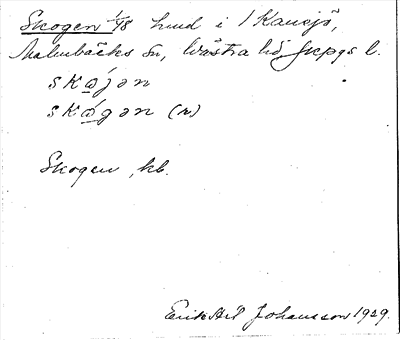 Skogen 1/8 hmd i 1 Kansjö,
Malmbäcks sn, Västra hd, Jkpgs l.
skøjən
skǿgən (n)
Skogen, kb.
Erik Johansson 1929.